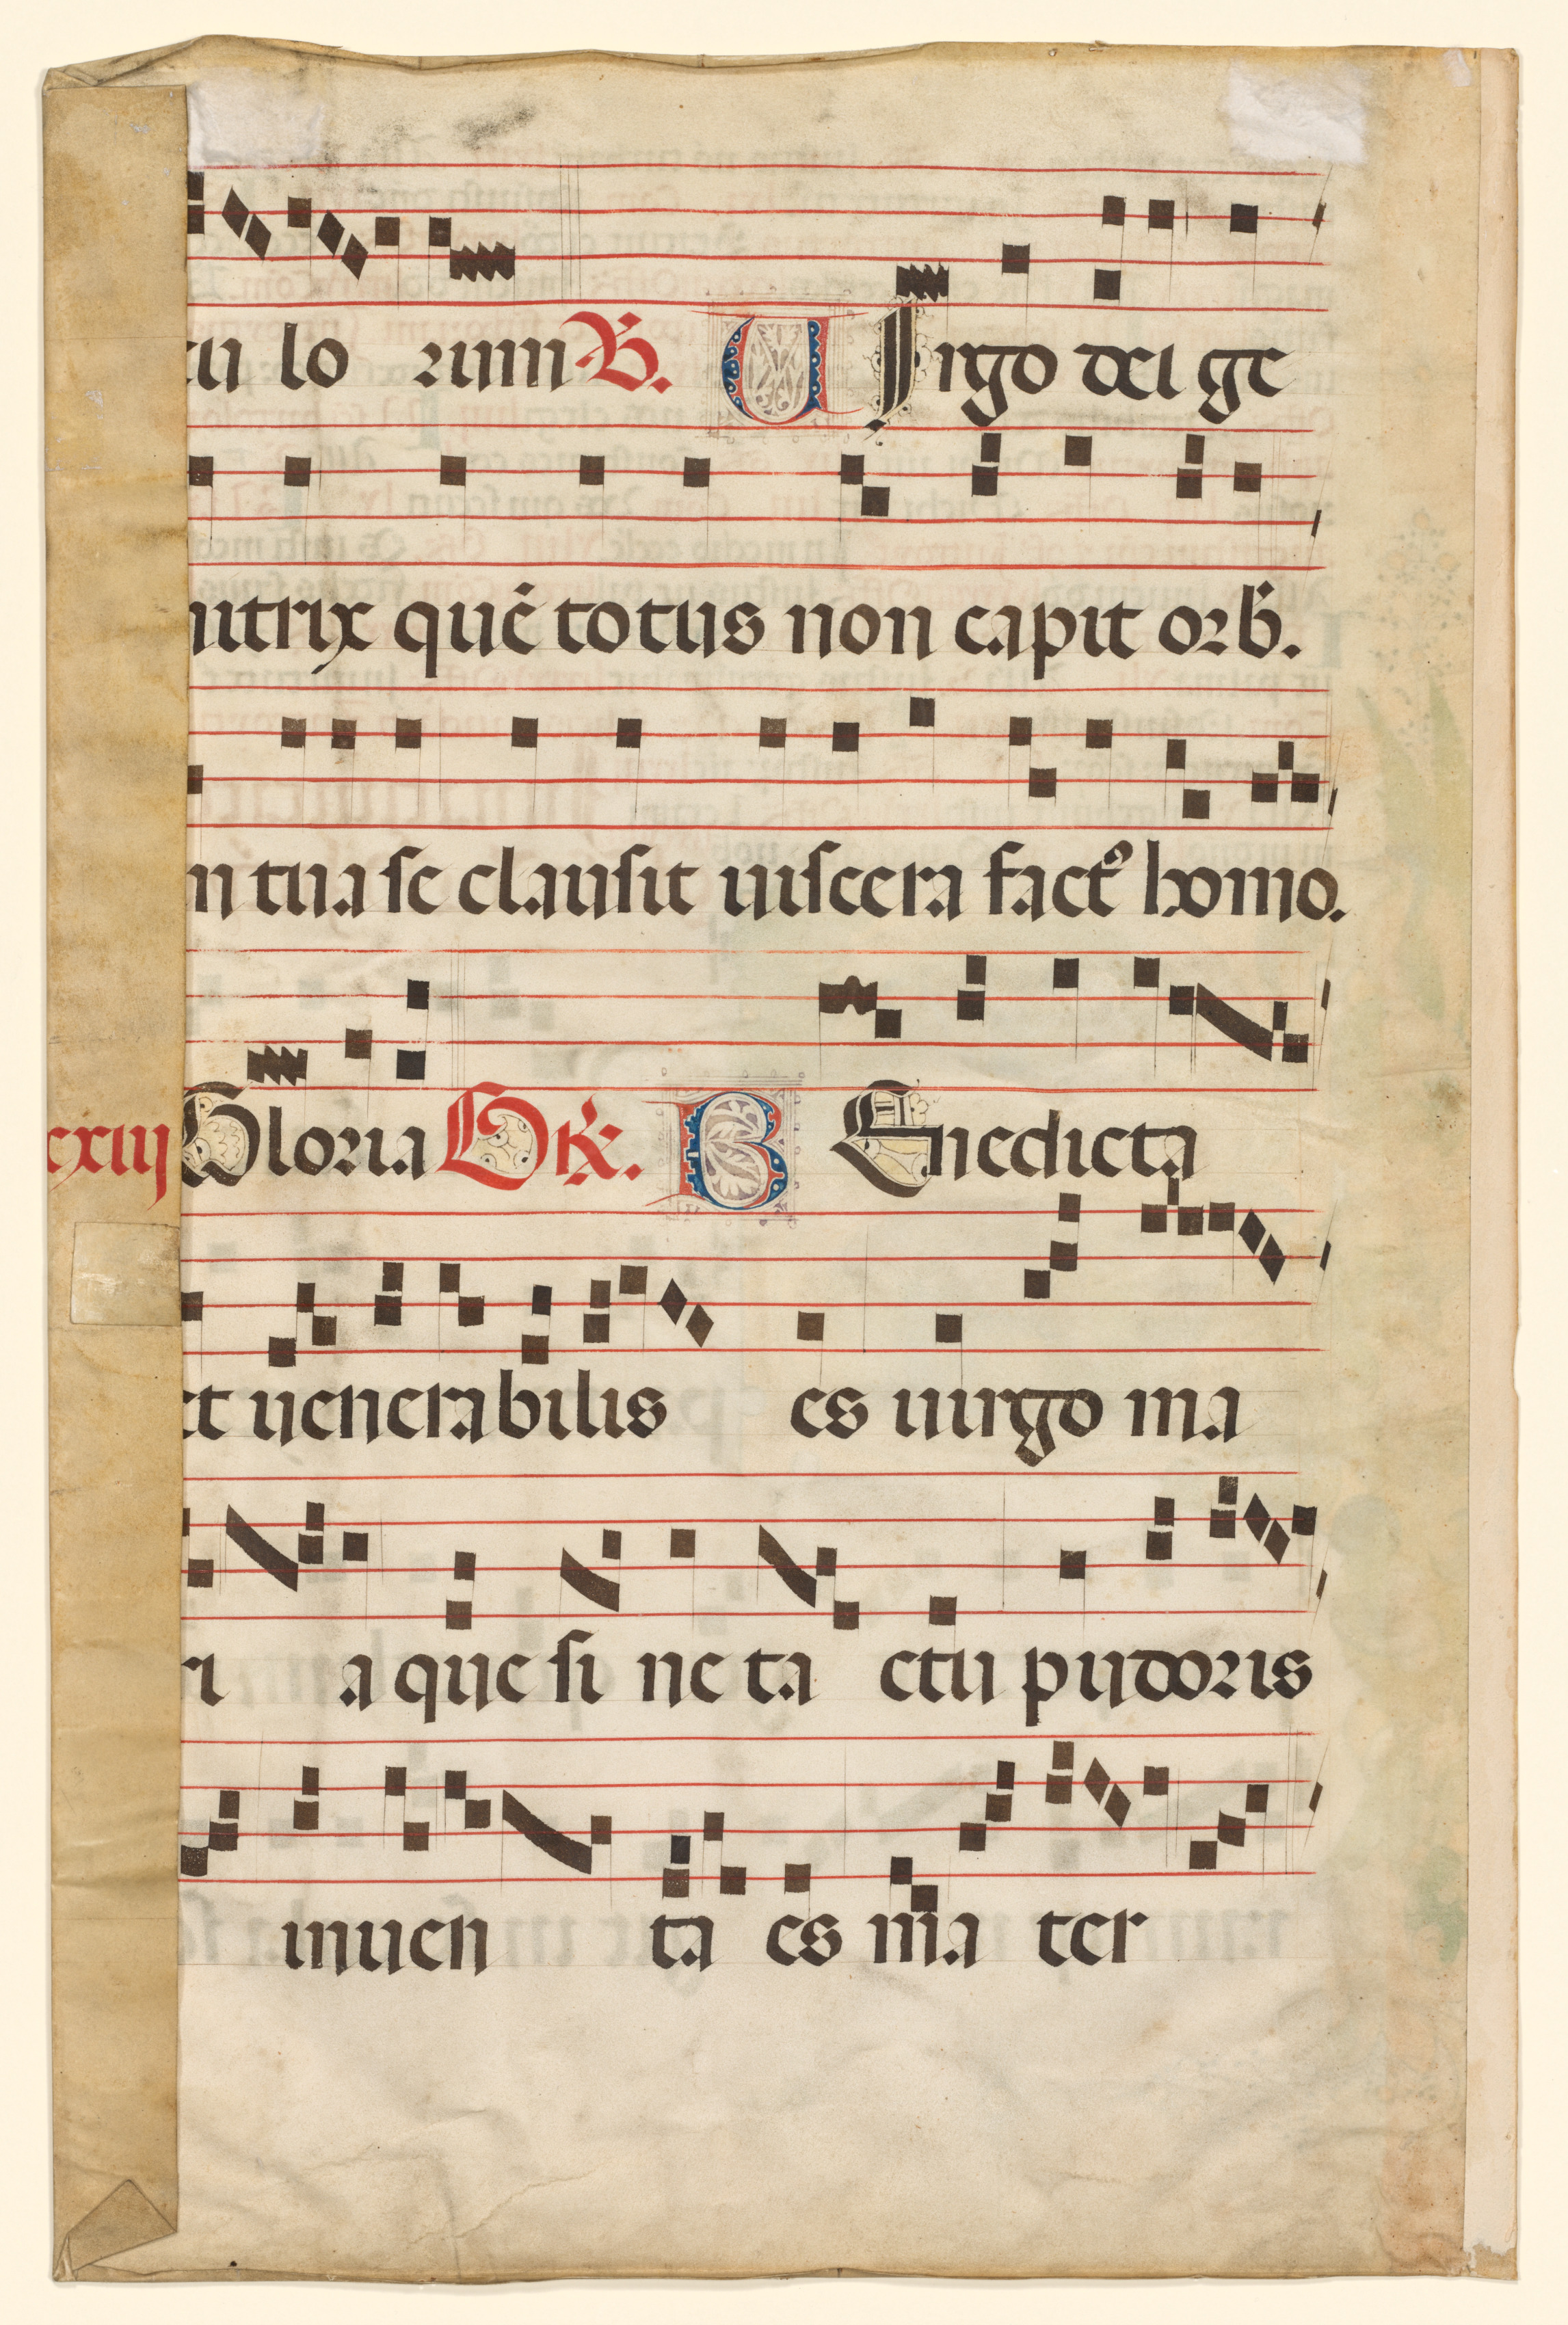 cu lo rum ℣. U Irgo dei ge
nitrix quē totus non capit orb̄.
n tua se clausit uiscera fact⁹ homo.
cxiij Gloria Gr̄. B Enedicta
et uenerabilis es uirgo ma
ri a que si ne ta ctu pudoris
inuen ta es ma ter